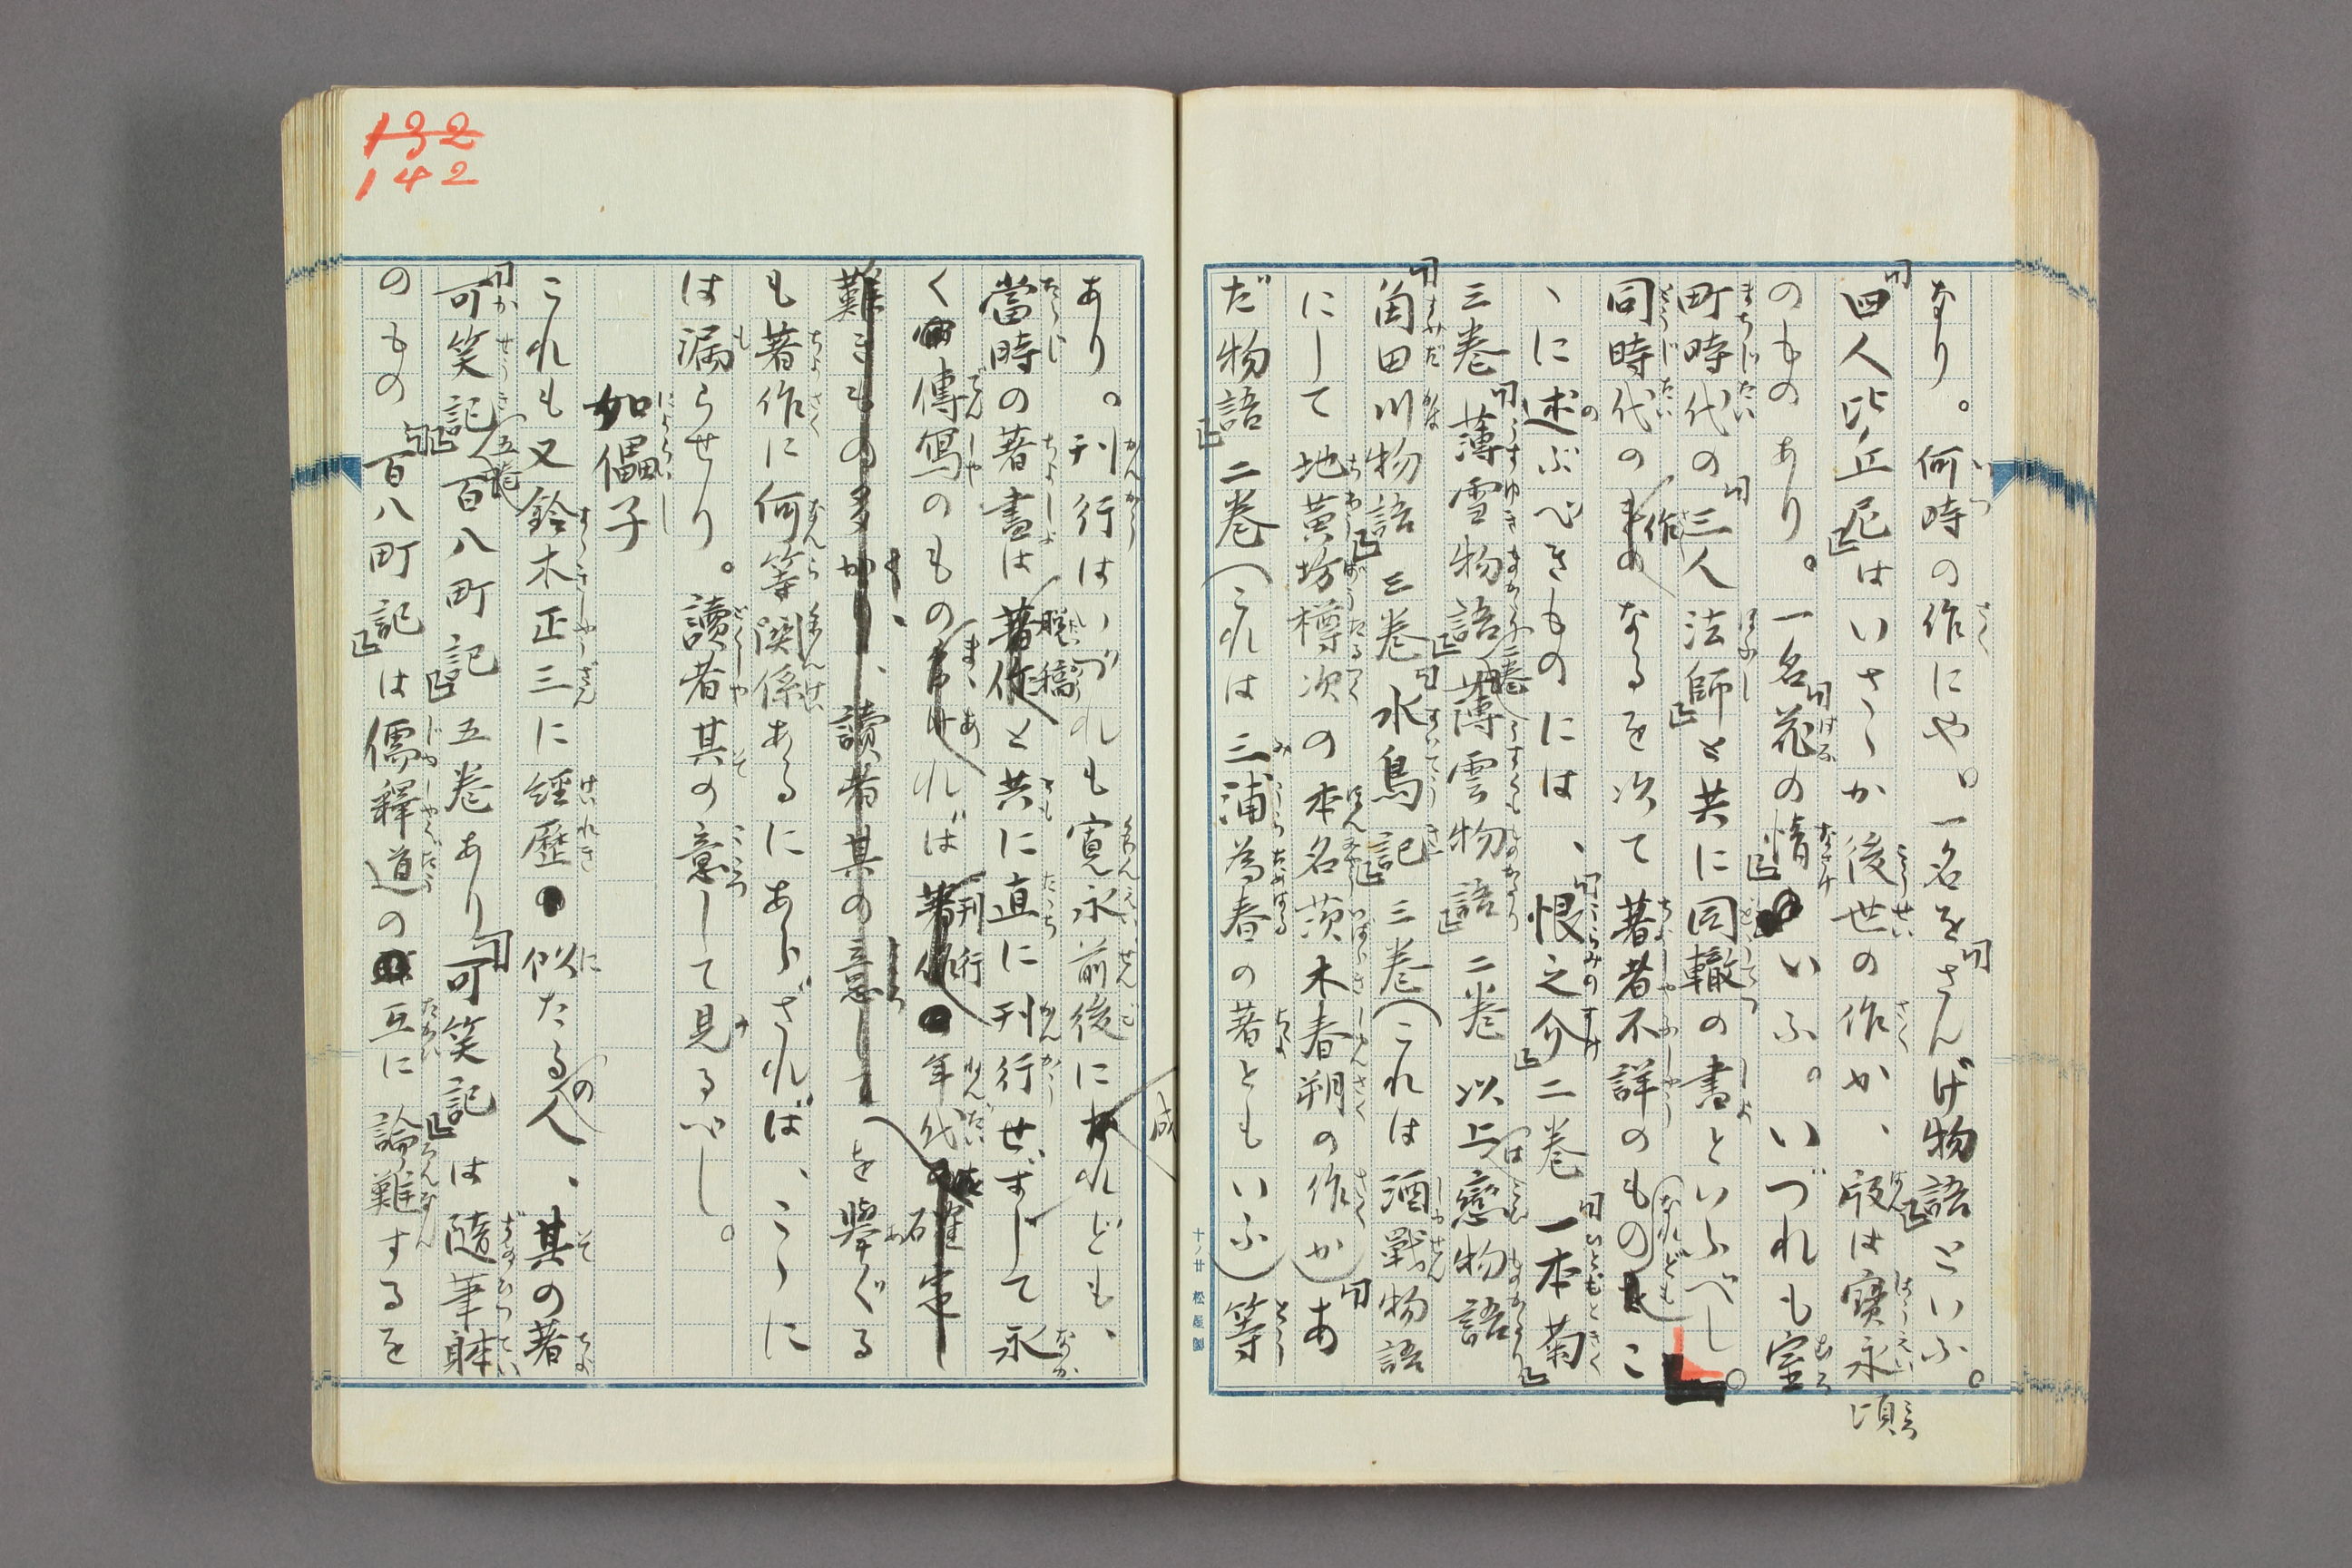 なり。何時の作にや。一名を「さんげ物語」といふ。
「四人比丘尼」はいさゝか後世の作か、版は寶永頃
のものあり。一名「花の情」いふ。いづれも室
町時代の「三人法師」と共に同轍の書といふべし。
同時代の作なるを次て著者不詳のものなれどもこ
ゝに述ぶべきものには、「恨之介」二巻「一本菊」
三巻「薄雪物語」二巻「薄雲物語」二巻以上は戀物語
「角田川物語」三巻「水鳥記」三巻(これは酒戰物語
にして地黄坊樽次の本名茨木春朔の作か)「あ
だ物語」二巻(これは三浦為春の著ともいふ)等
あり。刊行はいづれも寛永前後に成れども、
當時の著書は脱稿と共に直に刊行せずして永
く傳寫のものまゝあれば刊行年代
を擧ぐる
も著作に何等関係あるにあらざれば、こゝに
は漏らせり。讀者其の意して見るべし。
如儡子
これも又鈴木正三に經歴の似たる人、其の著
「可笑記」五巻「百八町記」五巻あり「可笑記」は隨筆躰
のもの「百八町記」は儒釋道の互に論難するを
132
142
十ノ廿 松屋製